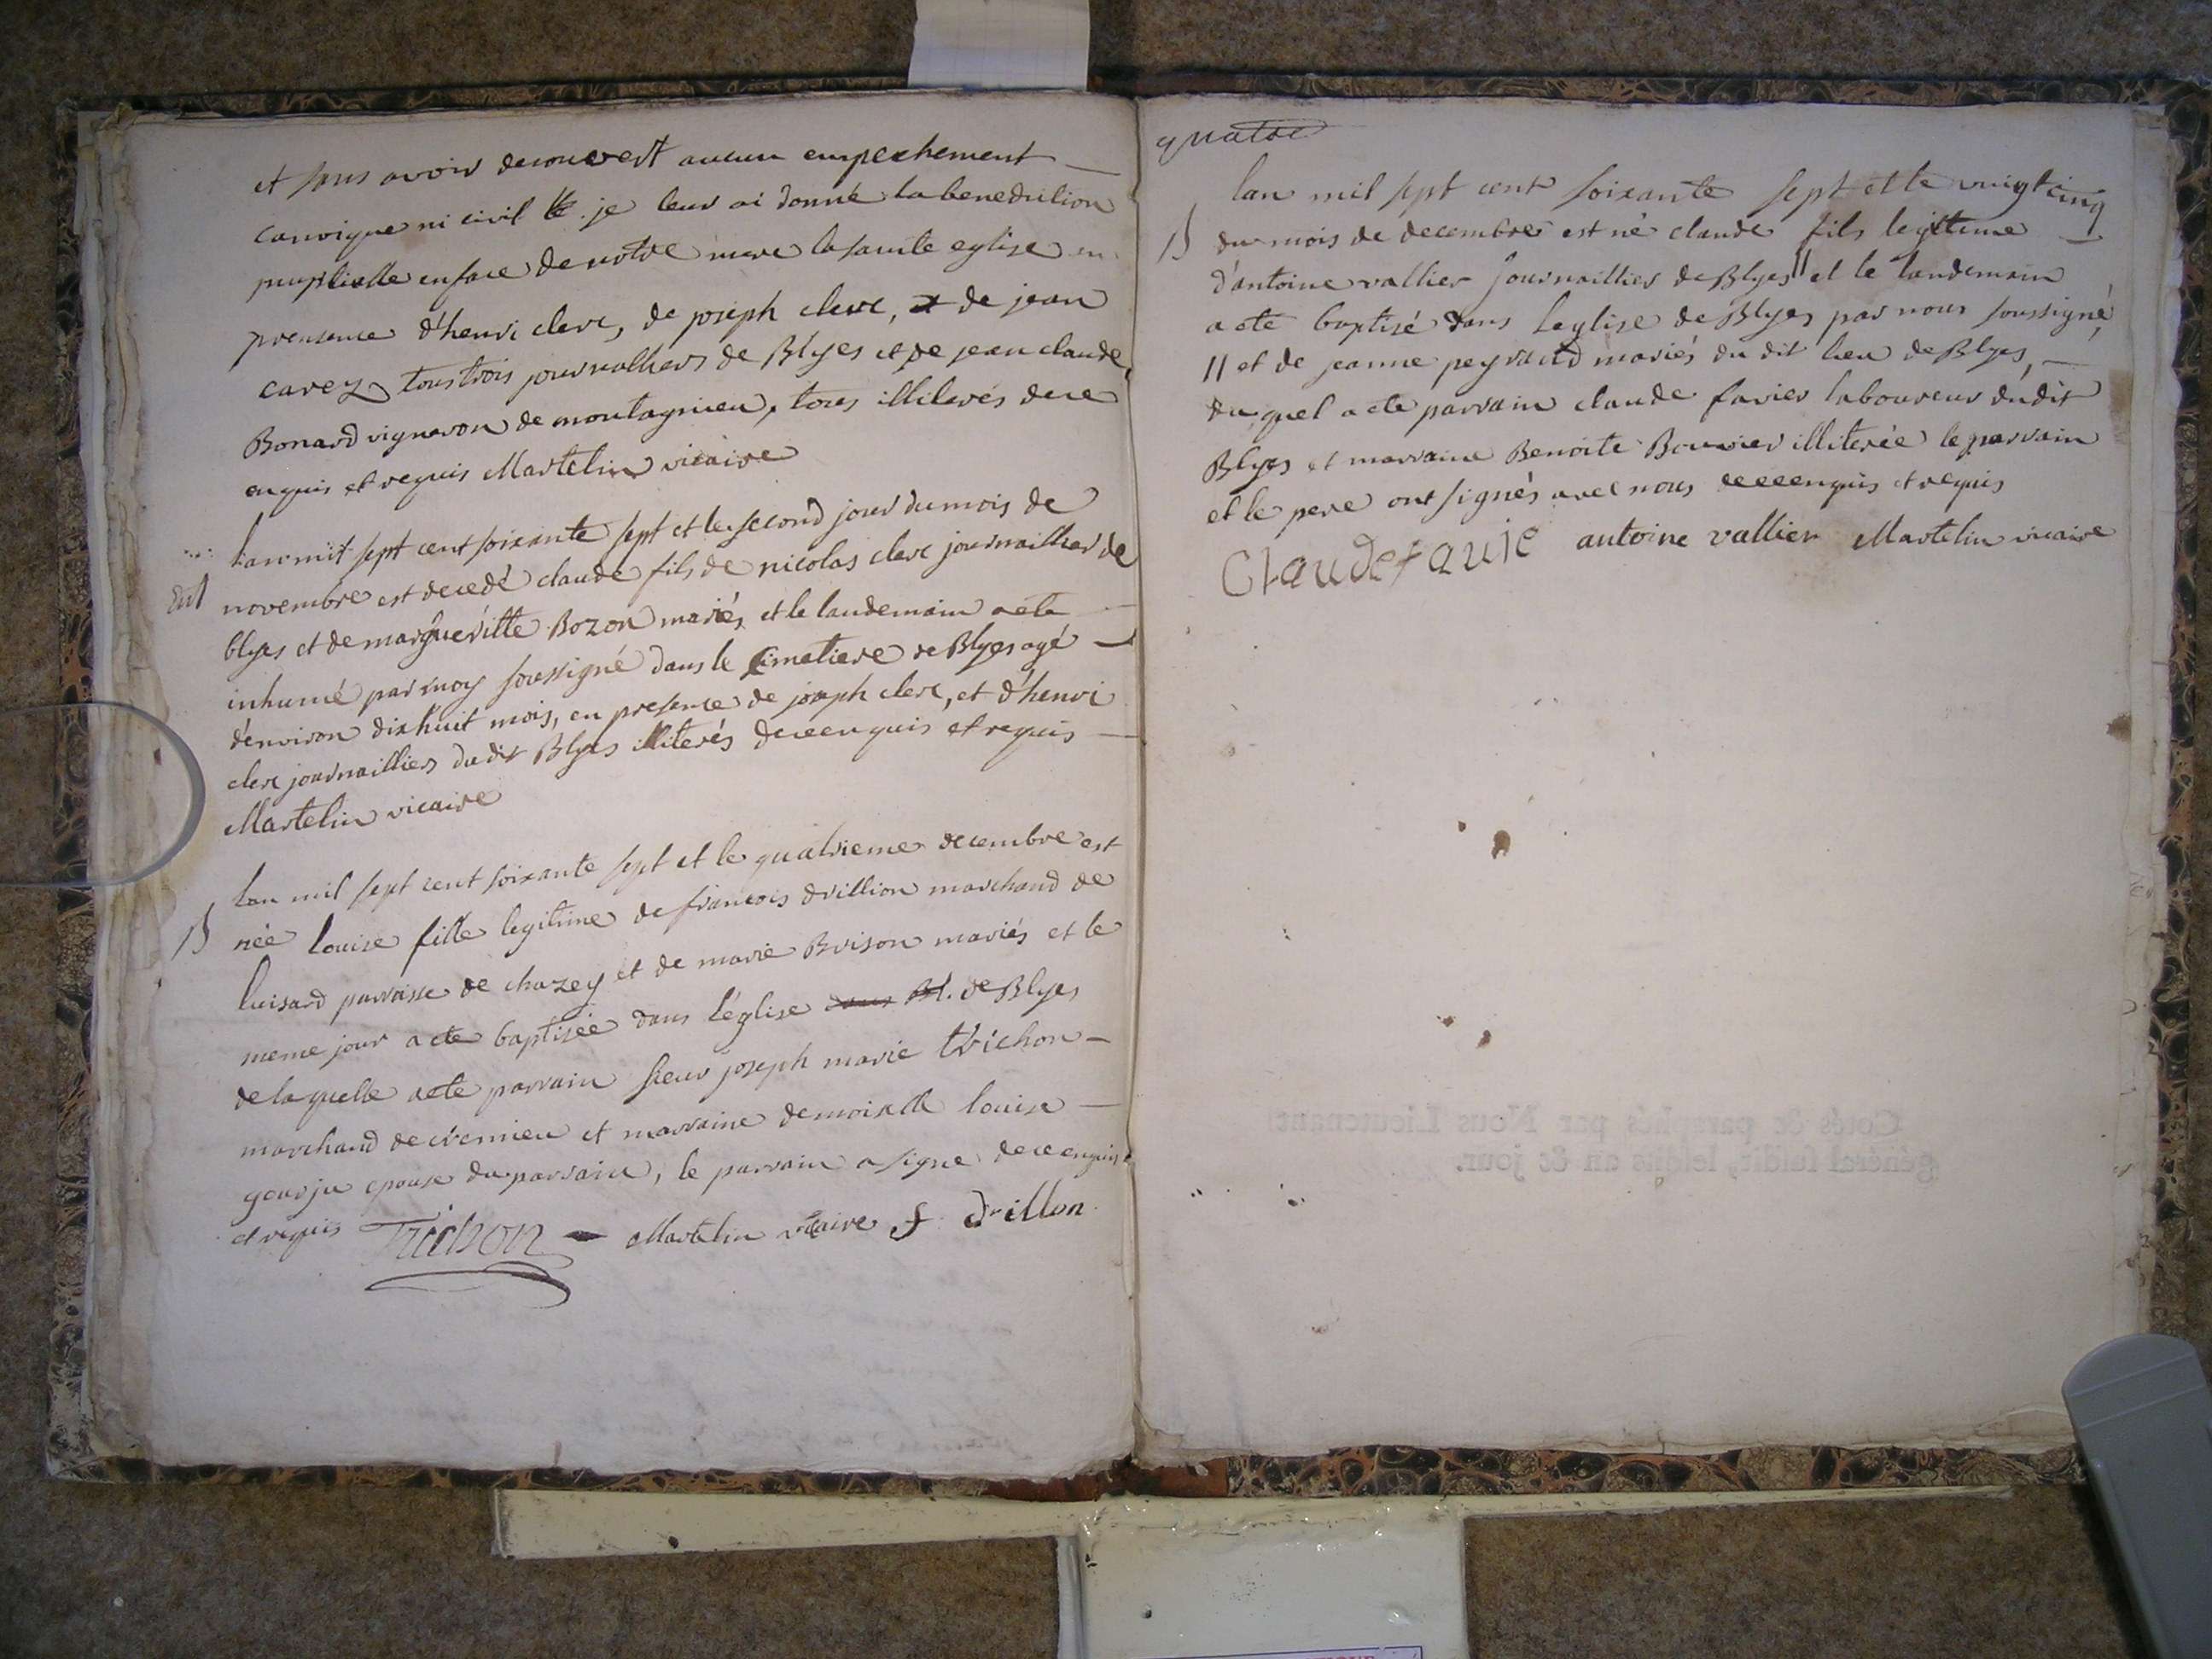 et sans avoir decouvert aucun empechement
canoique ni civil je leur ai donné la benediction
nuptialle en face de notre mere la sainte eglise en
presence d'henri clerc, de joseph clerc, de jean
carez tous trois journalhers de Blyes et de jean claude
Bonard vigneron de montagnieu, tous illiterés de ce
enquis et requis Martelin vicaire
lan mil sept cent soixante sept et le second jour du mois de
novembre est decedé claude fils de nicolas clerc journaillier de
blyes et de margueritte Bozon mariés, et le landemain a eté
inhumé par moy soussigné dans le cimetiere de Blyes agé
d'environ dixhuit mois, en presence de joseph clerc, et d'henri
clerc journailliers du dit Blyes illiterés de ce enquis et requis
Martelin vicaire
lan mil sept cent soixante sept et le quatrieme decembre est
B née louise fille legitime de francois drillion marchand de
luisard parroisse de chazey et de marie Brison mariés et le
meme jour a eté baptisée dans l'église dans Bl. de Blyes
de laquelle a eté parrain sieur joseph marie trichon
marchand de cremieu et marraine demoiselle louise
gourju epouse du parrain, le parrain a signé de ce enquis
et requis Trichon Martelin vicaire f drillon
quatre
lan mil sept cent soixante sept et le vingt cinq
B du mois de decembre est né claude fils legitime
d'antoine vallier journaillier de Blyes // et le landemain
a eté baptisé dans leglise de Blyes par nous soussigné,
// et de jeanne peyraud mariés du dit lieu de Blyes,
du quel a eté parrain claude favier laboureur du dit
Blyes et marraine Benoite Bouvier illiterée le parrain
et le pere ont signés avec nous de ce enquis et requis
Claude favie antoine vallier Martelin vicaire
Cotés & paraphés par Nous Lieutenant
général susdit, lesdits an & jour.